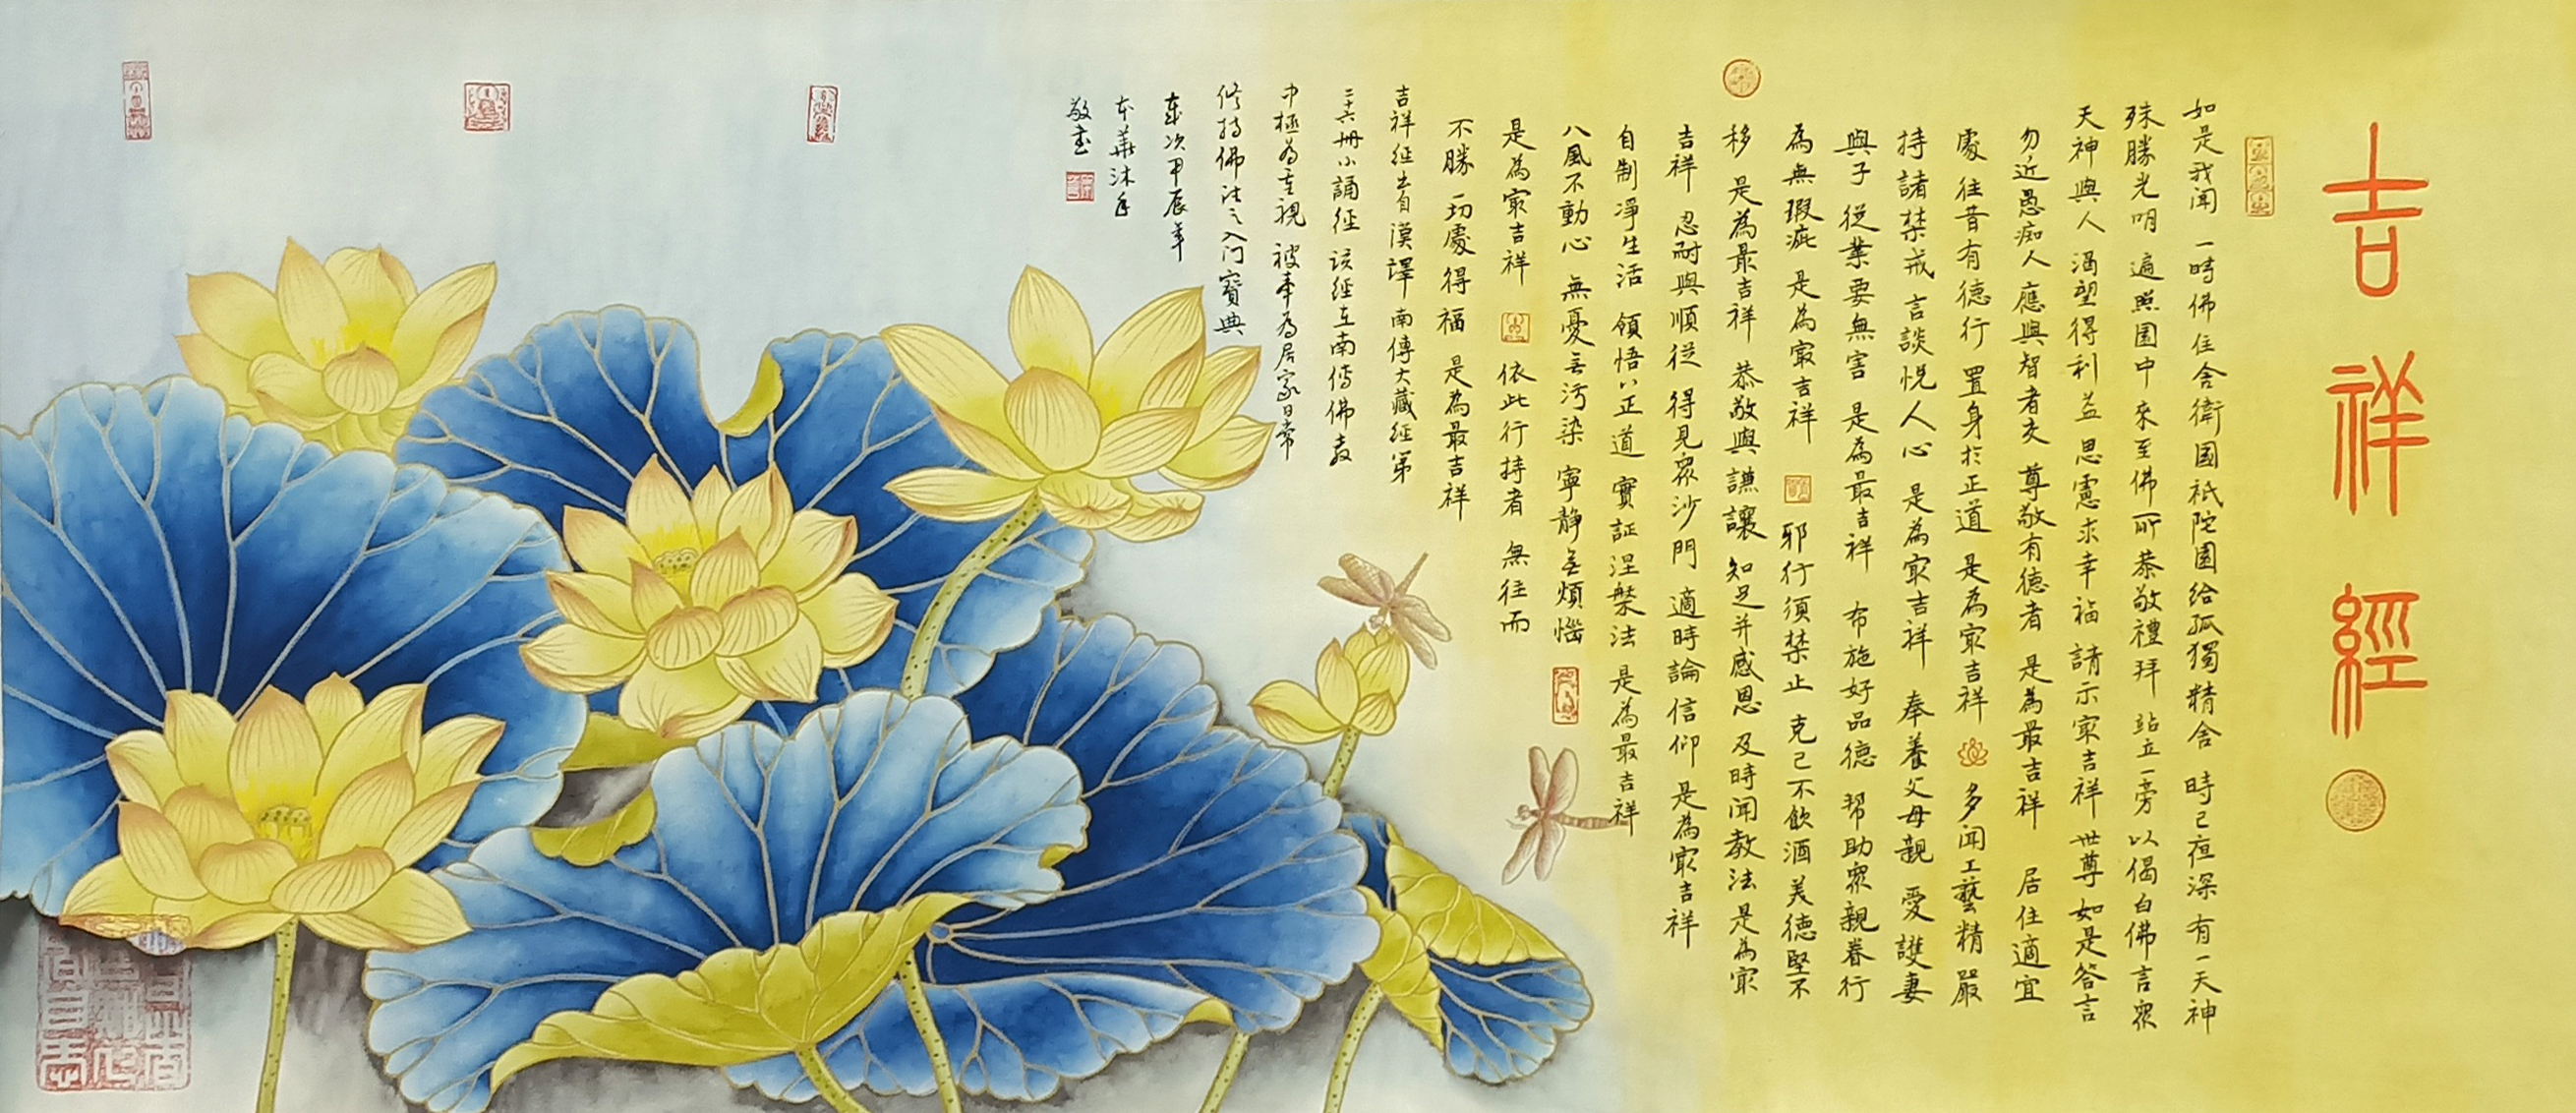 吉祥經
如是我闻 一時佛住舍衛國祇陀園給孤獨精舍 時已夜深有一天神
殊勝光明 遍照園中 來至佛所恭敬禮拜 站立一旁以偈白佛言眾
天神與人 渴望得利益 思慮求幸福 請示最吉祥 世尊如是答言
勿近愚痴人 應與智者交 尊敬有德者 是為最吉祥 居住適宜
處 往昔有德行 置身於正道 是為最吉祥 多闻工藝精 嚴
持諸禁戒 言談悅人心 是為最吉祥 奉養父母親 愛護妻
與子 從業要無害 是為最吉祥 布施好品德 帮助眾親眷行
為無瑕疵 是為最吉祥 邪行須禁止 克己不飲酒 美德堅不
移 是為最吉祥 恭敬與謙讓 知足并感恩 及時闻教法 是為最
吉祥 忍耐與順從 得見眾沙門 適時論信仰 是為最吉祥
自制净生活 領悟八正道 實証涅槃法 是為最吉祥
八風不動心 無憂无污染 寧静无煩惱
是為最吉祥 依此行持者 無往而
不勝 一切處得福 是為最吉祥
吉祥经出自漢譯南傳大藏经第
二十六册小誦经 该经在南传佛教
中極为重視 被奉为居家日常
修持佛法之入门寶典
歲次甲辰年
本華沐手
敬书